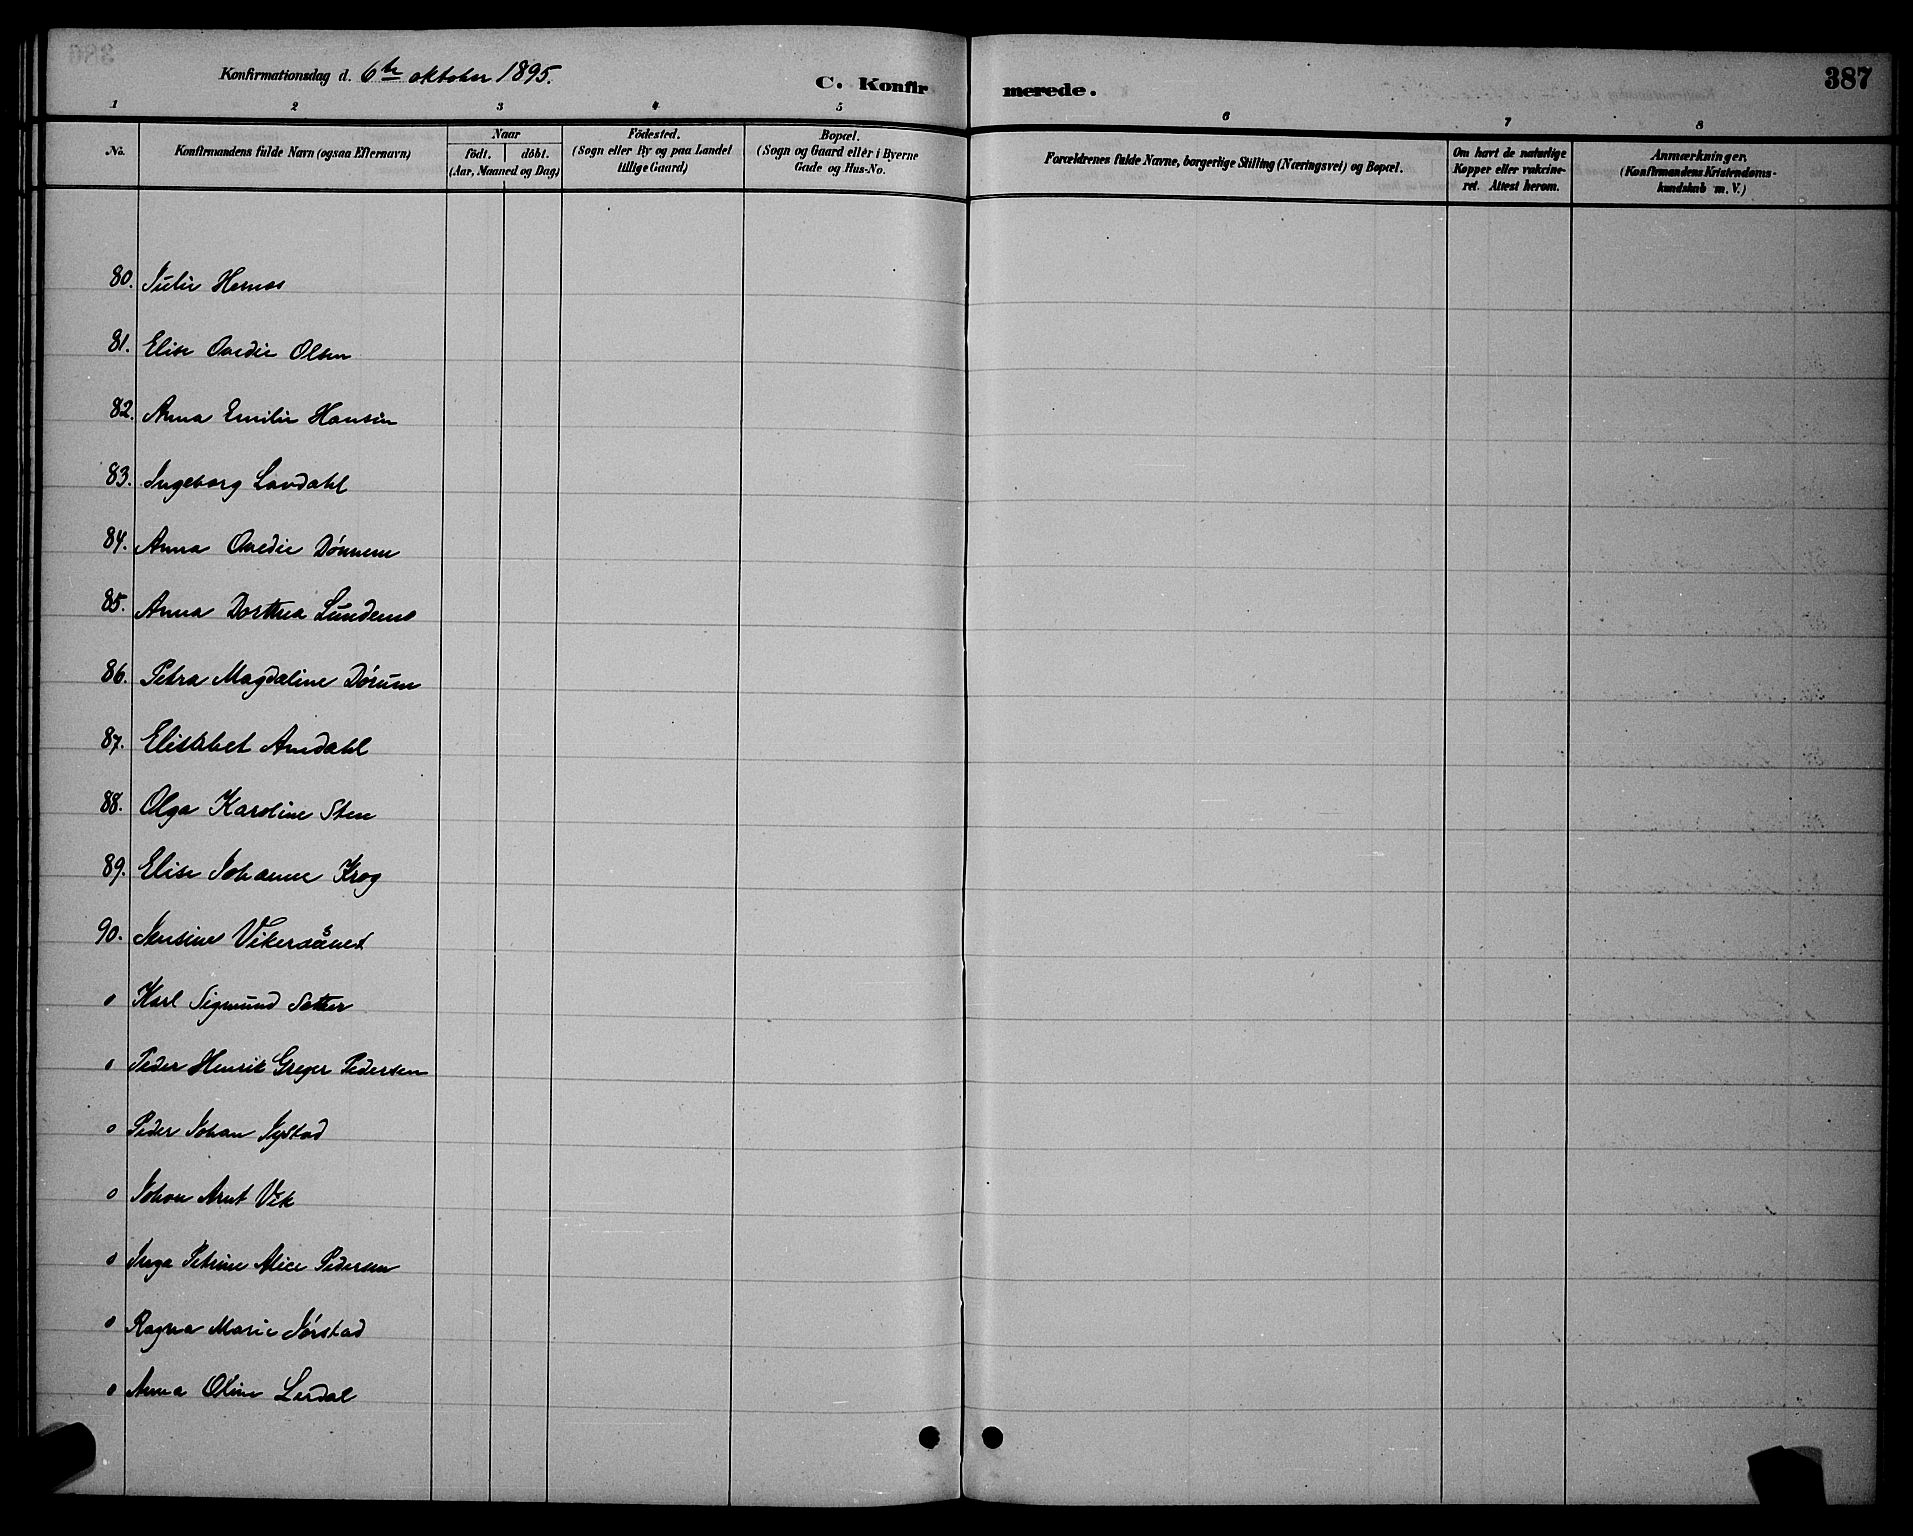 Konfirmationsdag d. 6te oktober 1895.
C. Konfirmerede.
387
1 2 3 4 5 6 7 8
No.
Konfirmandens fulde Navn (ogsaa Efternavn)
Naar
födt. döbt.
(Aar, Maaned og Dag)
Födested.
(Sogn eller By og paa Landet
tillige Gaard)
Bopæl.
(Sogn og Gaard eller i Byerne
Gade og Hus-No.
Forældrenes fulde Navne, borgerlige Stilling (Næringsvei) og Bopæl.
Om havt de naturlige
Kopper eller vakcine-
ret. Attest herom.
Anmærkninger.
(Konfirmandens Kristendoms-
kundskab m. V.)
80. Julie Hernes
81. Elise Ovedie Olsen
82. Anna Emilie Hansen
83. Ingeborg Lavdahl
84. Anna Ovedie Dönnem
85. Anna Dorthea Lundemo
86. Petra Magdaline Dørum
87. Elisabet Amdahl
88. Olga Karoline Sten
89. Elise Johanne Krog
90. Jensine
0 Karl Sigmund Sæther
0 Peder Henrik Greger Pedersen
0 Peder Johan Systad
0 Johan Arnt Vik
0 Inga Petrine Alice Pedersen
0 Ragna Marie Sørstad
0 Anna Oline Lerdal